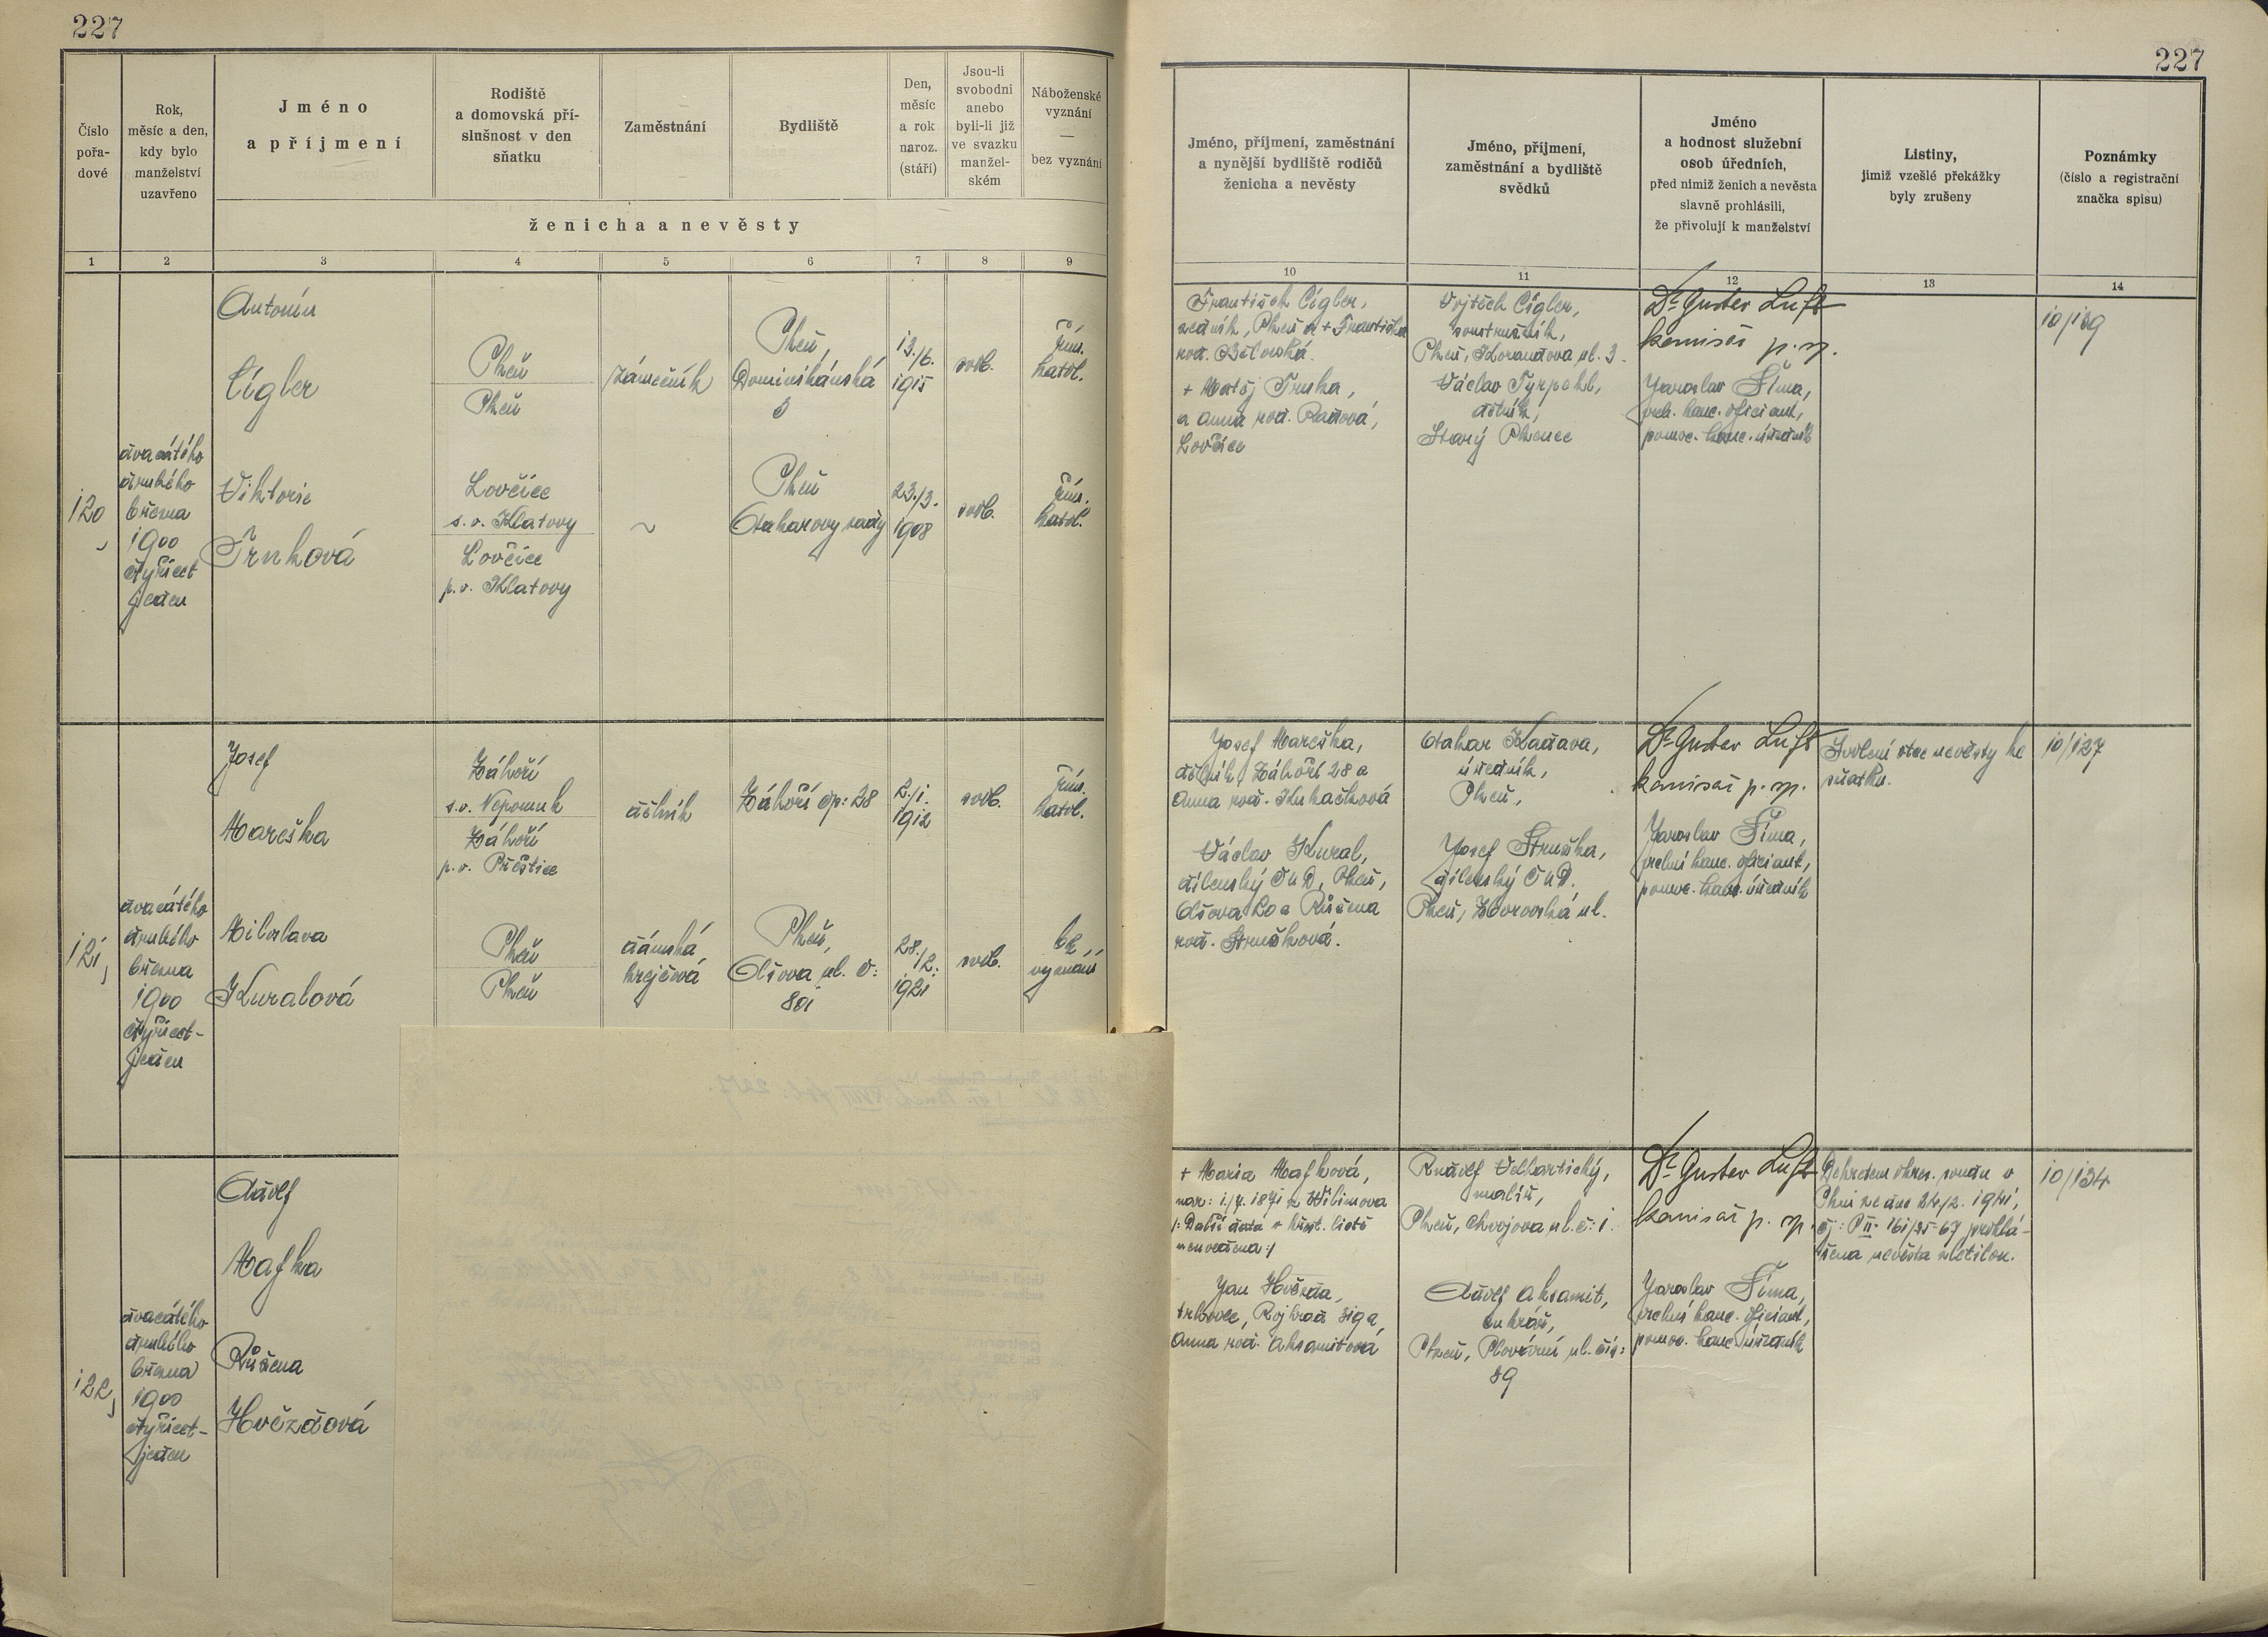 227
227
Číslo
pořa-
dové
Rok,
měsíc a den,
kdy bylo
manželství
uzavřeno
Jméno
a příjmení
Rodiště
a domovská pří-
slušnost v den
sňatku
Zaměstnání
Bydliště
Den,
měsíc
a rok
naroz.
(stáří)
Jsou-li
svobodni
anebo
byli-li již
ve svazku
manžel-
ském
Náboženské
vyznání
—
bez vyznání
ženicha a nevěsty
Jméno, příjmení, zaměstnání
a nynější bydliště rodičů
ženicha a nevěsty
Jméno, příjmení,
zaměstnání a bydliště
svědků
Jméno
a hodnost služební
osob úředních,
před nimiž ženich a nevěsta
slavně prohlásili,
že přivolují k manželství
Listiny,
jimiž vzešlé překážky
byly zrušeny
Poznámky
(číslo a registrační
značka spisu)
1 2 3 4 5 6 7 8 9
10 11 12 13 14
120,
dvacátého
druhého
března
1900
čtyřicet
jeden
Antonín
Cígler
Viktorie
Trnková
Plzeň
Plzeň
Lovčice
s.o. Klatovy
Lovčice
p.o. Klatovy
zámečník
~
Plzeň,
Dominikánská
3
Plzeň
Otakarovy sady
13./6.
1915
23./3.
1908
svob.
svob.
řím.
katol.
řím.
katol.
František Cígler,
zedník, Plzeň a + Františka
roz. Bělovská.
+ Matěj Trnka,
a Anna roz. Radová,
Lovčice
Vojtěch Cígler,
soustružník,
Plzeň, Korandova ul. 3.
Václav Tyrpekl,
dělník,
Starý Plzenec
Dr Gustav Luft
komisař p. sp.
Jaroslav Šíma,
vrch. kanc. oficiant,
pomoc. kanc. úředník
10/139
121,
dvacátého
druhého
března
1900
čtyřicet-
jeden
Josef
Mareška
Miloslava
Kuralová
Záhoří
s.o. Nepomuk
Záhoří
p.o. Přeštice
Plzeň
Plzeň
dělník
dámská
krejčová
Záhoří čp: 28
Plzeň,
Olšova ul. č:
801
2./1.
1912
28./2.
1921
svob.
svob.
řím.
katol.
bez
vyznání
Josef Mareška,
dělník, Záhoří 28 a
Anna roz. Kukačková
Václav Kural,
dílenský ČMD, Plzeň,
Olšova 20 a Růžena
roz. Struzková.
Otakar Kladava,
úředník,
Plzeň,
Josef Struzka,
dílenský ČMD.
Plzeň, Borovská ul.
Dr Gustav Luft
komisař p. sp.
Jaroslav Šíma,
vrchní kanc. oficiant,
pomoc. kanc. úředník
Svolení otce nevěsty ke
sňatku.
10/127
122,
dvacátého
druhého
března
1900
čtyřicet-
jeden
Adolf
Mafka
Růžena
Hvězdová
+ Maria Mafková,
nar: 1./7. 1871 z Wilimova
/: Další data v křest. listě
neuvedena:/
Jan Hvězda,
trhovec,
Anna roz. Aksamitová
Rudolf Velhartický,
malíř,
Plzeň, Chvojova ul. č: 1.
Adolf Aksamit,
cukrář,
Plzeň, Plovární ul. čís:
89
Dr Gustav Luft
komisař p. sp.
Jaroslav Šíma,
vrchní kanc. oficiant,
pomoc. kanc. úředník
Dekretem okres. soudu v
Plzni ze dne 24./2. 1941,
čj: P II 161/35-67 prohlá-
šena nevěsta zletilou.
10/134